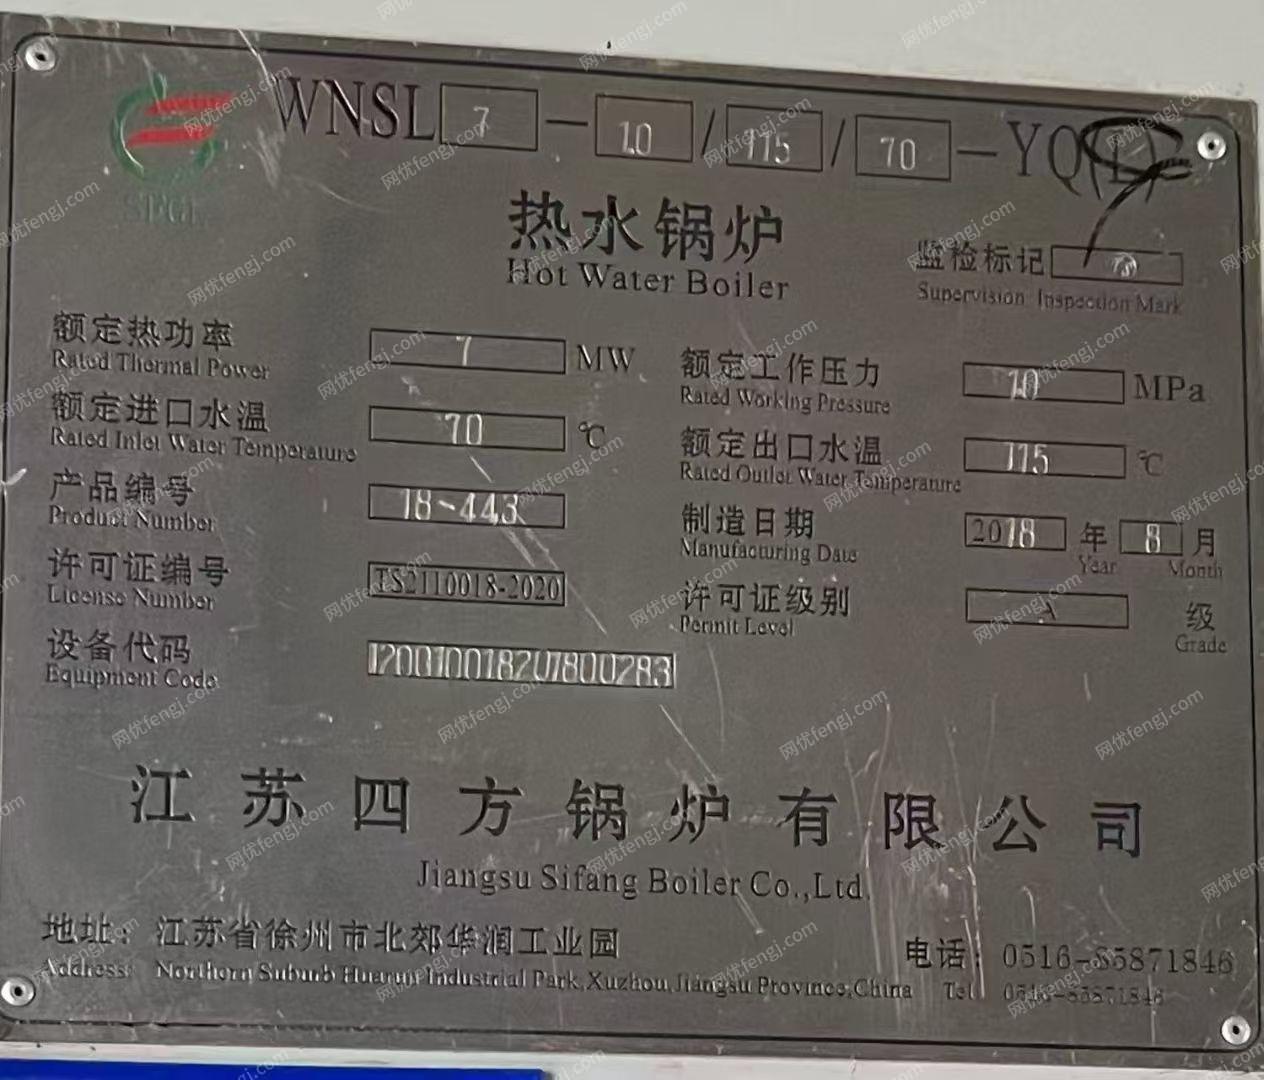 WNSL 7 — 1.0 / 115 / 70 — YQ
热水锅炉
Hot Water Boiler
监检标记 TS
Supervision Inspection Mark
额定热功率 7 MW
Rated Thermal Power
额定工作压力 1.0 MPa
Rated Working Pressure
额定进口水温 70 ℃
Rated Inlet Water Temperature
额定出口水温 115 ℃
Rated Outlet Water Temperature
产品编号 18-443
Product Number
制造日期 2018 年 8 月
Manufacturing Date Year Month
许可证编号 TS2110018-2020
License Number
许可证级别 A 级
Permit Level Grade
设备代码 120010018201800283
Equipment Code
江苏四方锅炉有限公司
Jiangsu Sifang Boiler Co.,Ltd.
地址: 江苏省徐州市北郊华润工业园
Address: Northern Suburb Huarun Industrial Park,Xuzhou,Jiangsu Province,China
电话: 0516-85871846
Tel 0516-85871846
网优fengj.com